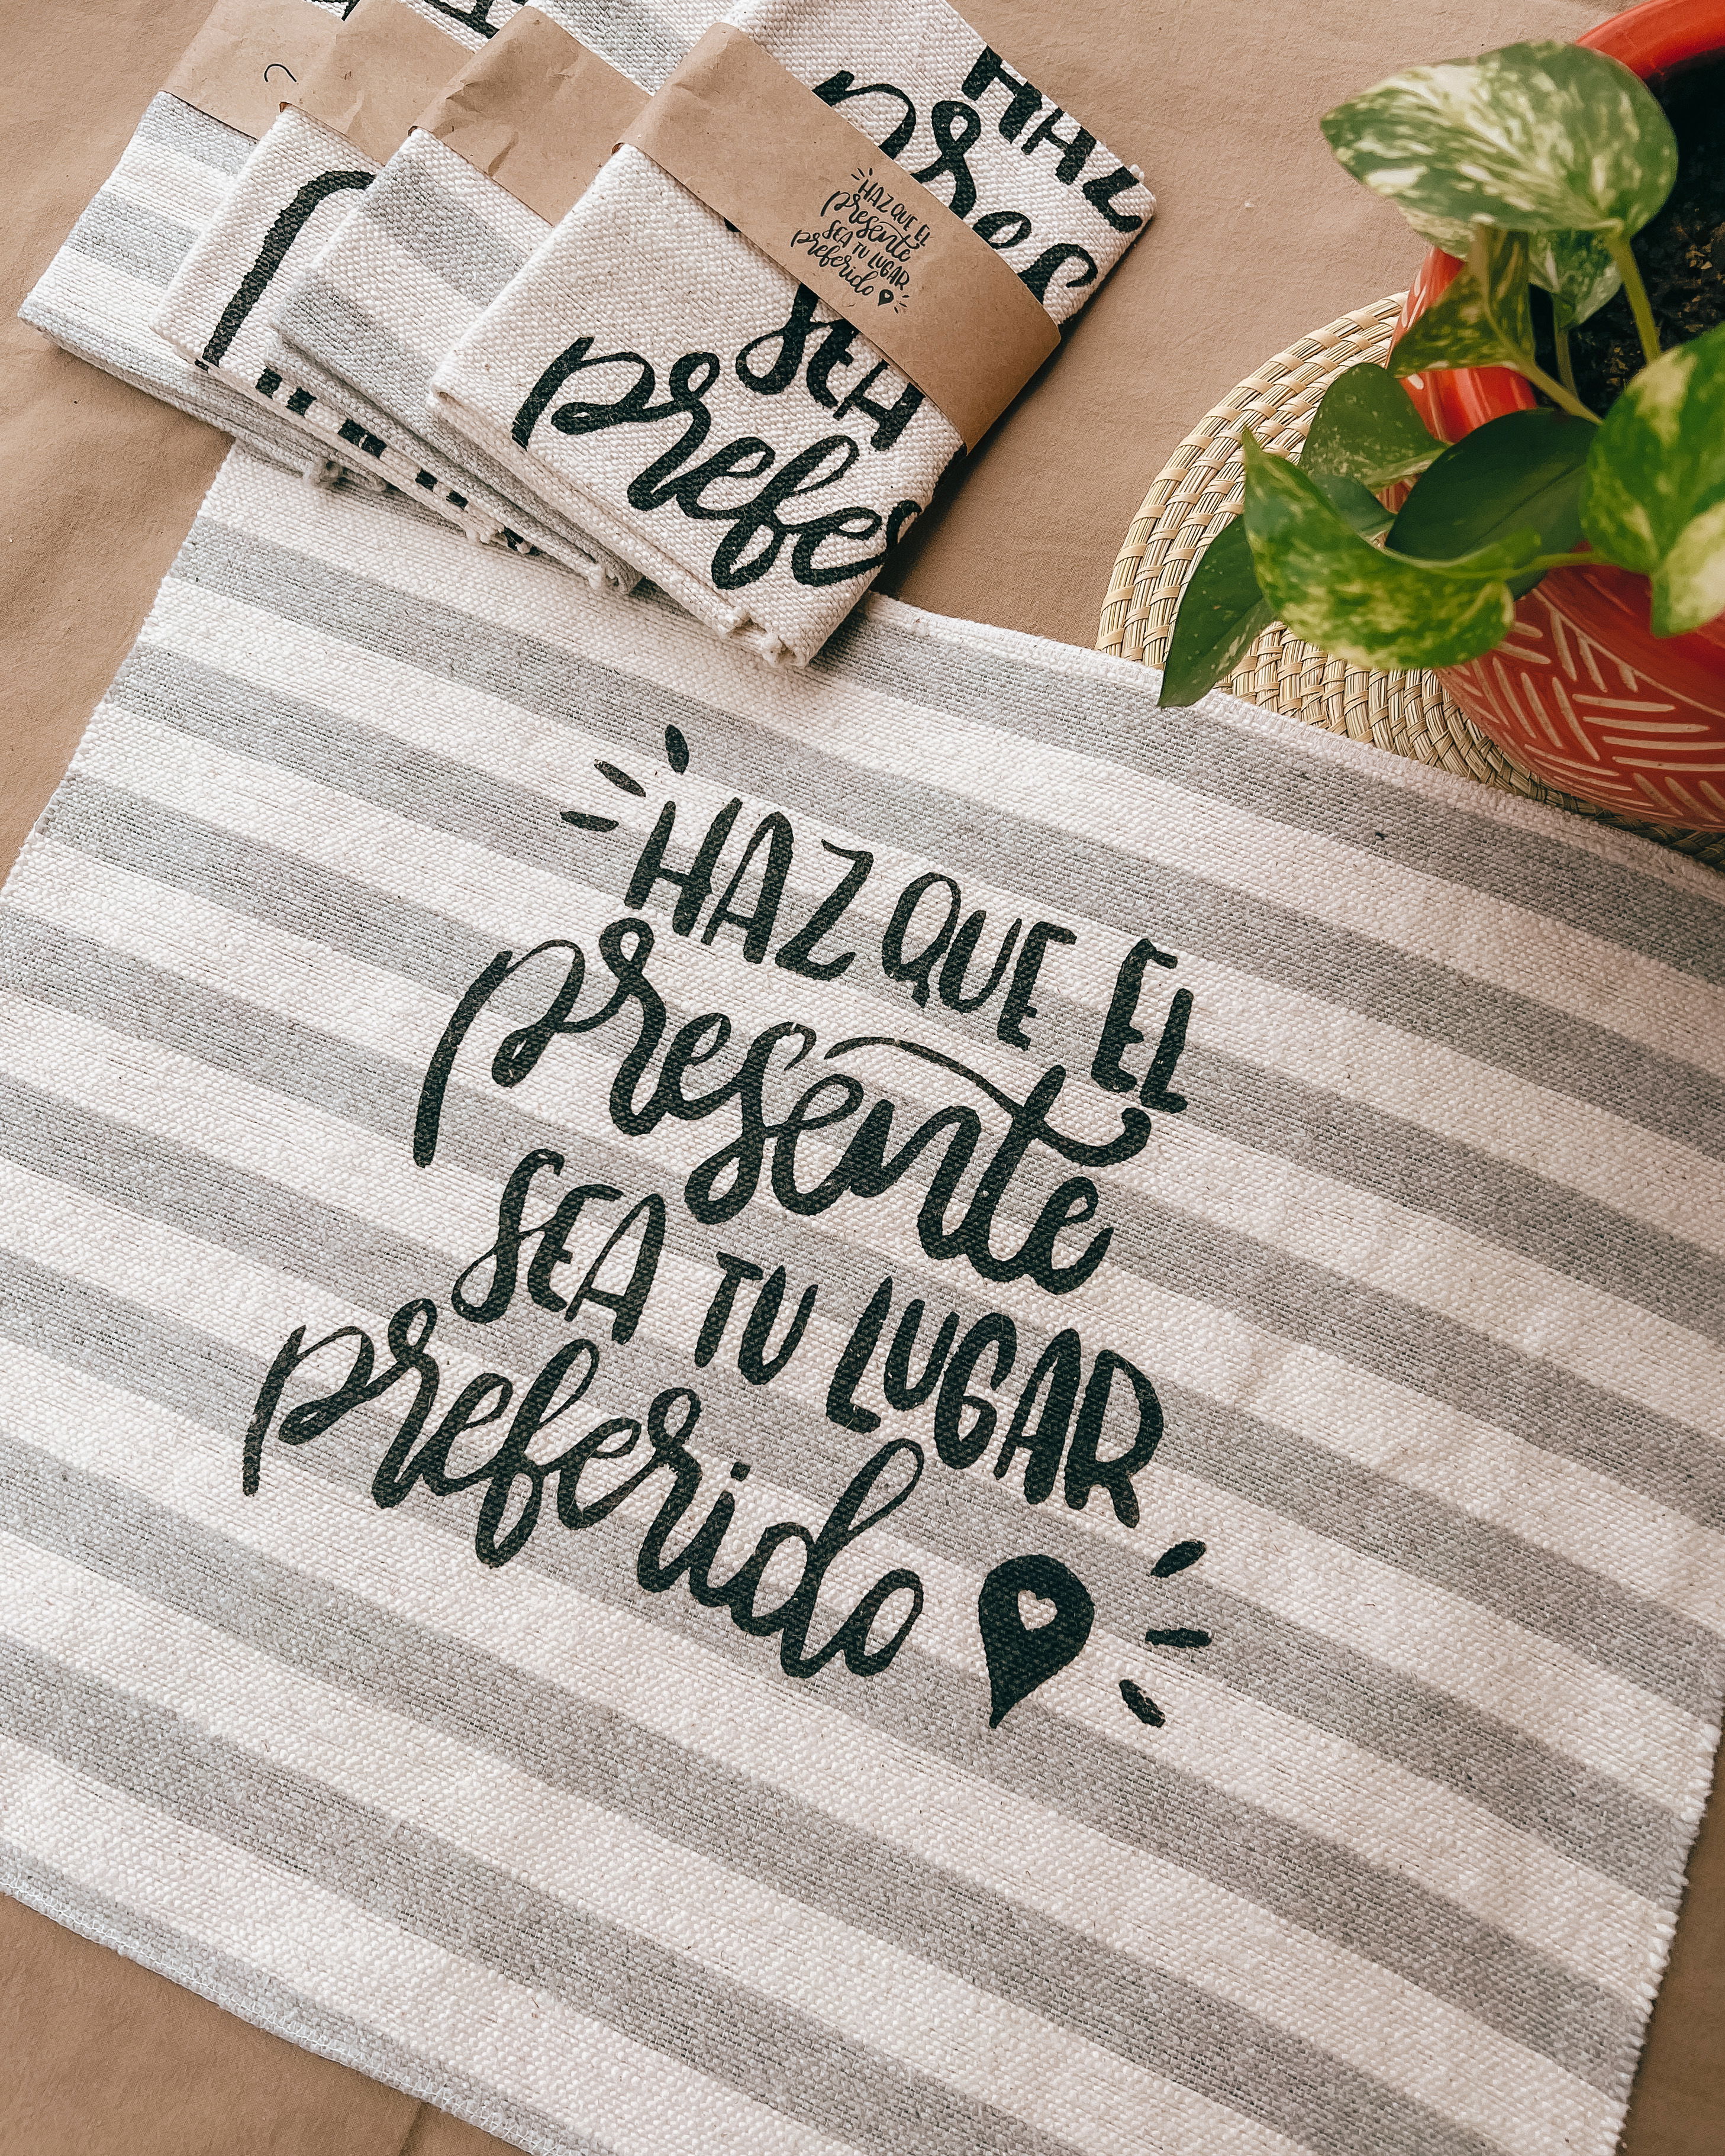 HAZ
pres
SEA
prefe
HAZ QUE EL
presente
SEA TU LUGAR
preferido
HAZ QUE EL
presente
SEA TU LUGAR
preferido